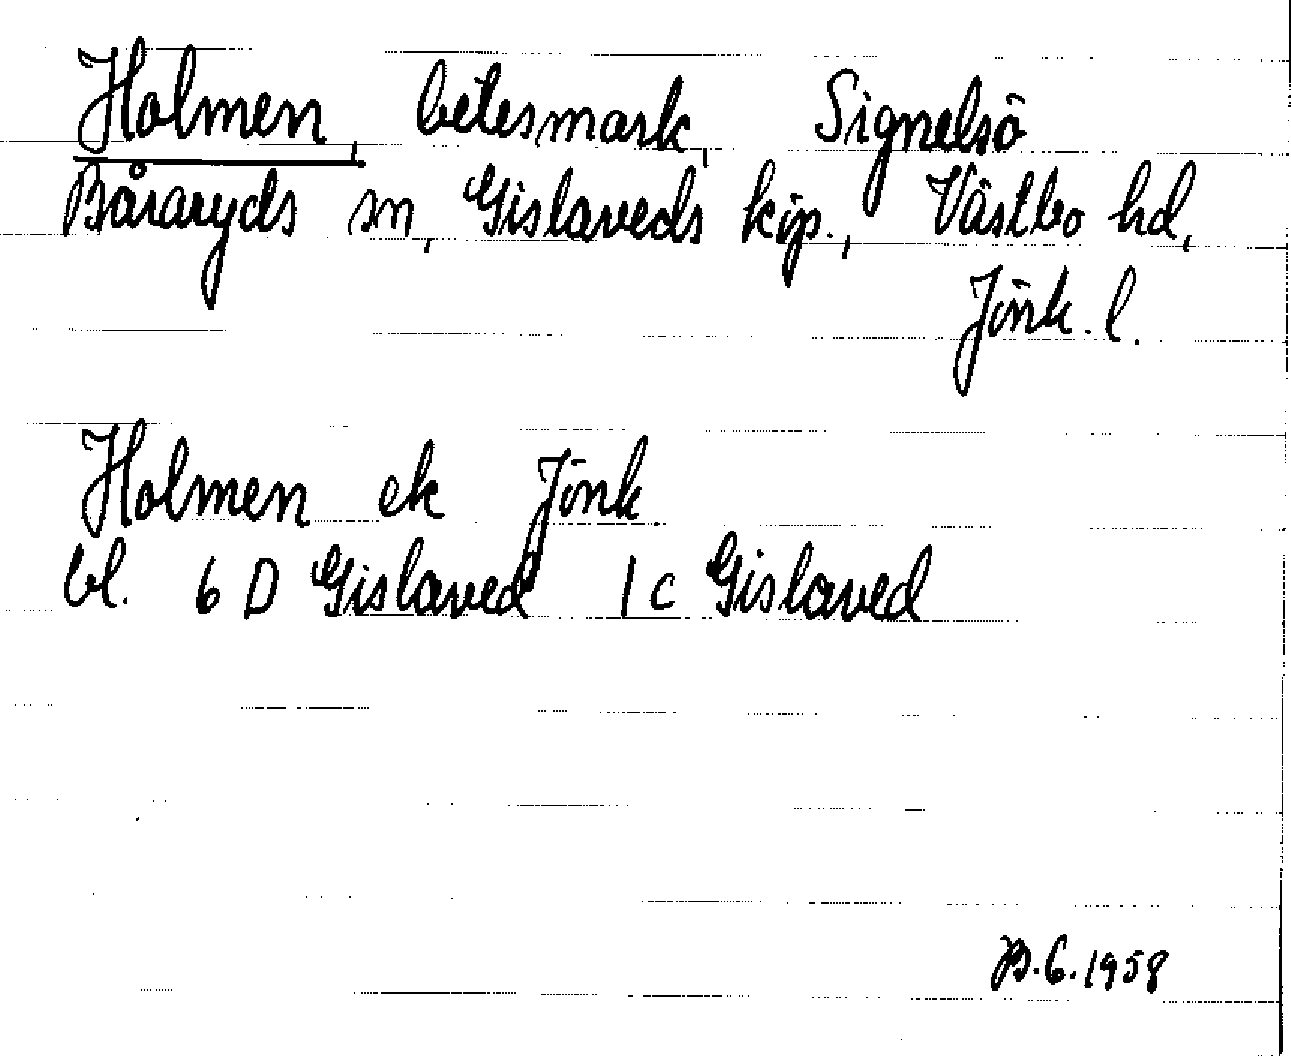 Holmen, betesmark, Signelsö
Båraryds sn, Gislaveds köp., Västbo hd,
Jönk. l.
Holmen ek Jönk
bl. 6 D Gislaved 1 c Gislaved
B.G.1958